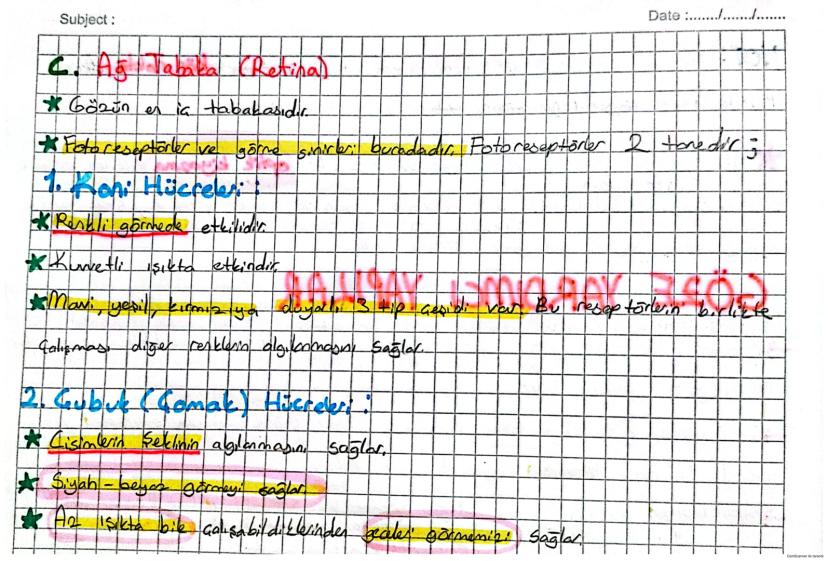 Subject :
Date :......./......./.......
C. Ağ Tabaka (Retina)
★ Gözün en iç tabakasıdır.
★ Fotoreseptörler ve görme sinirleri buradadır. Fotoreseptörler 2 tanedir ;
1. Koni Hücreleri :
★ Renkli görmede etkilidir.
★ Kuvvetli ışıkta etkindir.
GÖZE YARDIMCI YAPILAR
★ Mavi, yeşil, kırmızıya duyarlı 3 tip çeşidi var. Bu reseptörlerin birlikte
çalışması diğer renklerin algılanmasını sağlar.
2. Çubuk (Çomak) Hücreleri :
★ Cisimlerin Şeklinin algılanmasını sağlar.
★ Siyah-beyaz görmeyi sağlar.
★ Az ışıkta bile çalışabildiklerinden geceleri görmemizi sağlar.